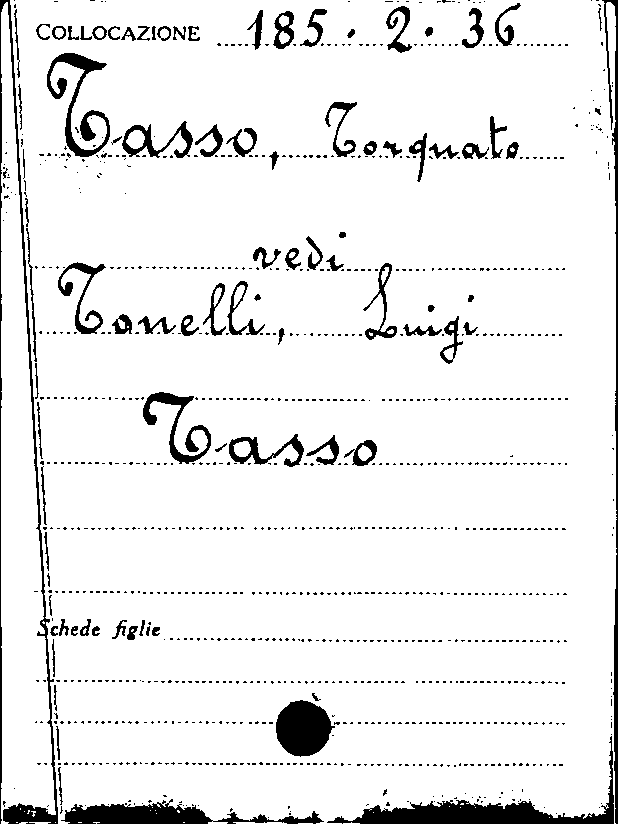 COLLOCAZIONE 185 · 2 · 36
Tasso, Torquato
vedi
Tonelli, Luigi
Tasso
Schede figlie